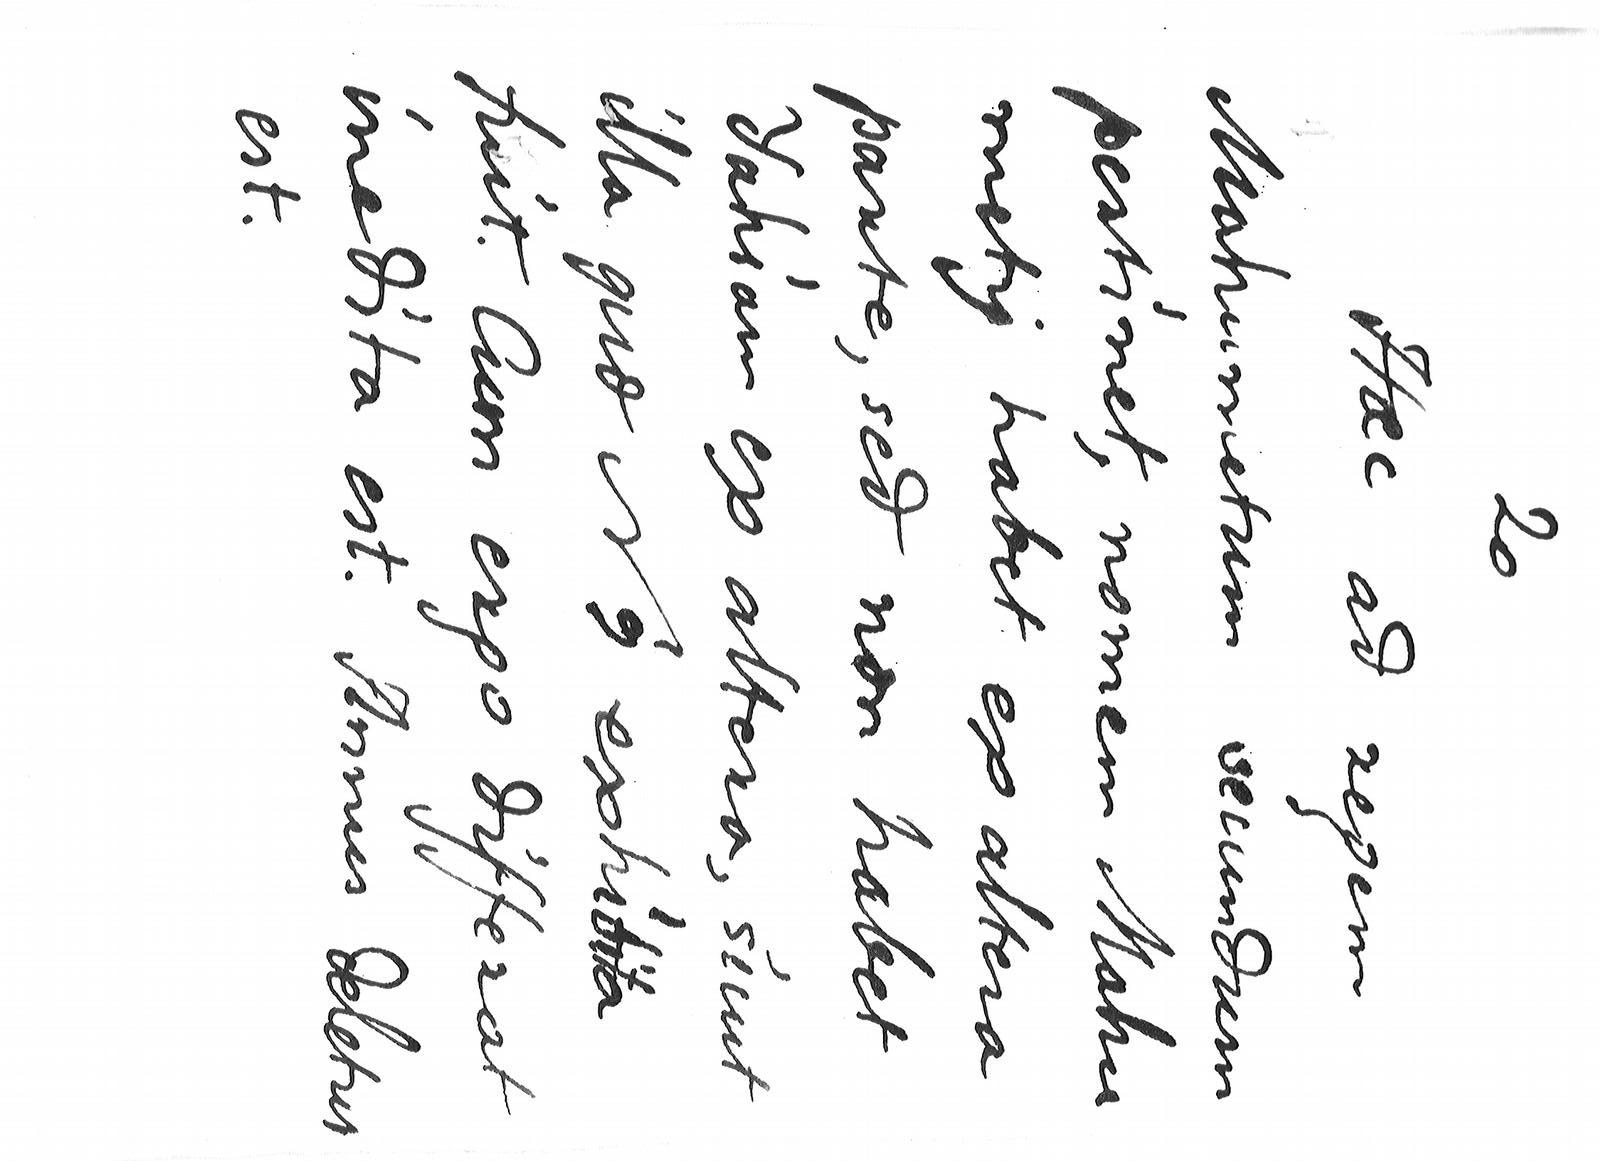 20
Haec ad regem
Mahummetum secundum
pertinet, nomen Mahu
metj habet ex altera
parte, sed non habet
Yahiam ex altera, sicut
illa quo n° 9 exhibita
fuit. Cum ergo differat
inedita est. Annus deletus
est.